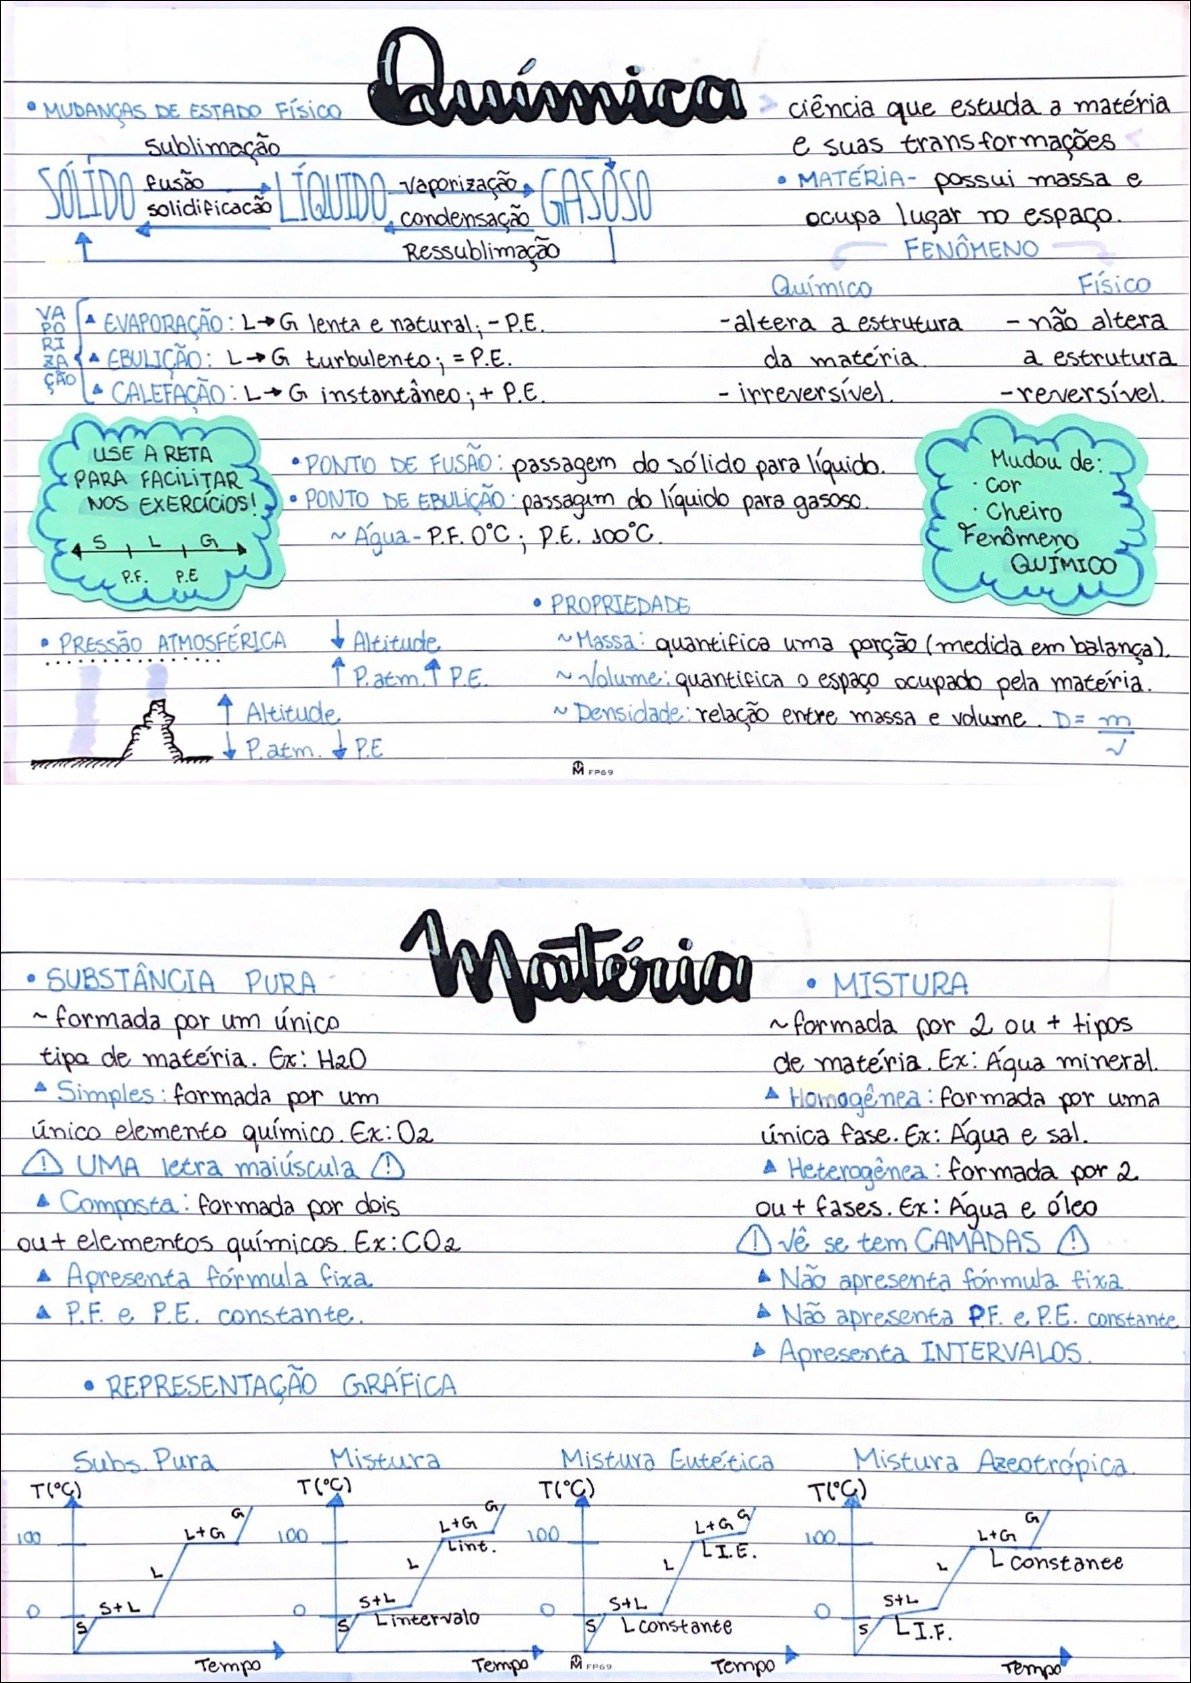 Química
ciência que estuda a matéria
e suas transformações
• MATÉRIA- possui massa e
ocupa lugar no espaço.
• MUDANÇAS DE ESTADO FÍSICO
Sublimação
SÓLIDO fusão LÍQUIDO vaporização GASOSO
solidificação condensação
Ressublimação
FENÔMENO
Químico Físico
-altera a estrutura - não altera
da matéria a estrutura
- irreversível. -reversível.
VAPORIZAÇÃO
EVAPORAÇÃO: L→G lenta e natural; - P.E.
EBULIÇÃO: L→G turbulento; = P.E.
CALEFAÇÃO: L→G instantâneo; + P.E.
USE A RETA
PARA FACILITAR
NOS EXERCÍCIOS!
S L G
P.F. P.E
• PONTO DE FUSÃO: passagem do sólido para líquido.
• PONTO DE EBULIÇÃO: passagem do líquido para gasoso.
~ Água- P.F. 0°C; P.E. 100°C.
Mudou de:
· Cor
· Cheiro
Fenômeno
QUÍMICO
• PRESSÃO ATMOSFÉRICA
↓ Altitude
↑ P.atm. ↑ P.E.
↑ Altitude
↓ P.atm. ↓ P.E
• PROPRIEDADE
~ Massa: quantifica uma porção (medida em balança).
~ Volume: quantifica o espaço ocupado pela matéria.
~ Densidade: relação entre massa e volume. D= m
v
FP69
Matéria
• SUBSTÂNCIA PURA
~ formada por um único
tipo de matéria. Ex: H2O
▲ Simples: formada por um
único elemento químico. Ex: O2
⚠ UMA letra maiúscula ⚠
▲ Composta: formada por dois
ou + elementos químicos. Ex: CO2
▲ Apresenta fórmula fixa
▲ P.F. e P.E. constante.
• MISTURA
~ formada por 2 ou + tipos
de matéria. Ex: Água mineral.
▲ Homogênea: formada por uma
única fase. Ex: Água e sal.
▲ Heterogênea: formada por 2
ou + fases. Ex: Água e óleo
⚠ Vê se tem CAMADAS ⚠
▲ Não apresenta fórmula fixa
▲ Não apresenta P.F. e P.E. constante
▲ Apresenta INTERVALOS.
• REPRESENTAÇÃO GRÁFICA
Subs. Pura
T(°C)
100
L+G
G
L
0
S+L
S
Tempo
Mistura
T(°C)
100
L+G
G
int.
L
0
S+L
intervalo
S
Tempo
Mistura Eutética
T(°C)
100
L+G
G
I.E.
L
0
S+L
constante
S
Tempo
Mistura Azeotrópica
T(°C)
100
L+G
G
constante
L
0
S+L
I.F.
S
Tempo
FP69